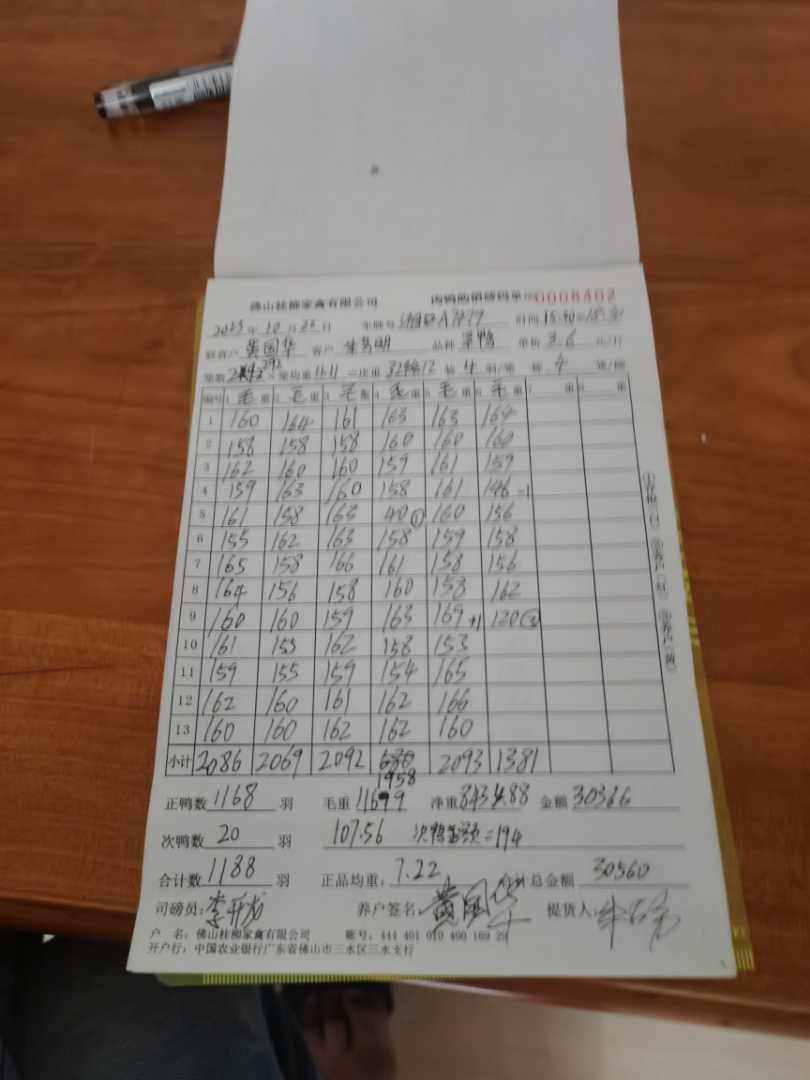 佛山桂柳家禽有限公司 肉鸭购销磅码单 0008402
2023年10月22日 车牌号 时间
养户 黄国华 客户 品种 单鸭 单价 3.6 元/斤
笼数 292 × 笼均重 11.11 = 总重 装 4 羽/笼 称 4 笼/磅
编号 1 毛重 2 毛重 3 毛重 4 毛重 5 毛重 6 毛重 7 重 8 重
1 160 164 161 163 163 164
2 158 158 158 160 160 160
3 162 160 160 159 161 159
4 159 163 160 158 161 146 -1
5 161 158 163 40① 160 156
6 155 162 163 158 159 158
7 165 158 166 161 158 156
8 164 156 158 160 158 162
9 160 160 159 163 169 +1 120③
10 161 153 162 158 153
11 159 155 159 154 165
12 162 160 161 162 166
13 160 160 162 162 160
小计 2086 2069 2092 1958 2093 1381
正鸭数 1168 羽 毛重 11679 净重 8434.88 金额 30366
次鸭数 20 羽 107.56 次鸭金额=194
合计数 1188 羽 正品均重: 7.22 合计总金额 30560
司磅员: 养户签名: 黄国华 提货人:
户 名: 佛山桂柳家禽有限公司 账号: 444 401 010 400 169 29
开户行: 中国农业银行广东省佛山市三水区三水支行